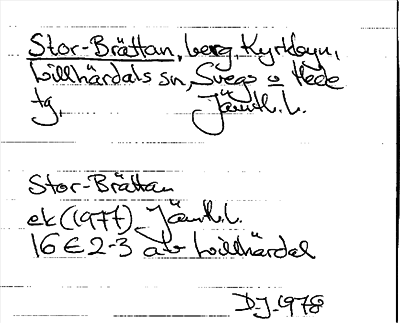 Stor-Brättan, berg, Kyrkbyn,
Lillhärdals sn, Svegs o Hede
tg, Jämtl. L.
Stor-Brättan
ek (1977) Jämtl. L.
16 E 2-3 a-b Lillhärdal
D.J. 1978